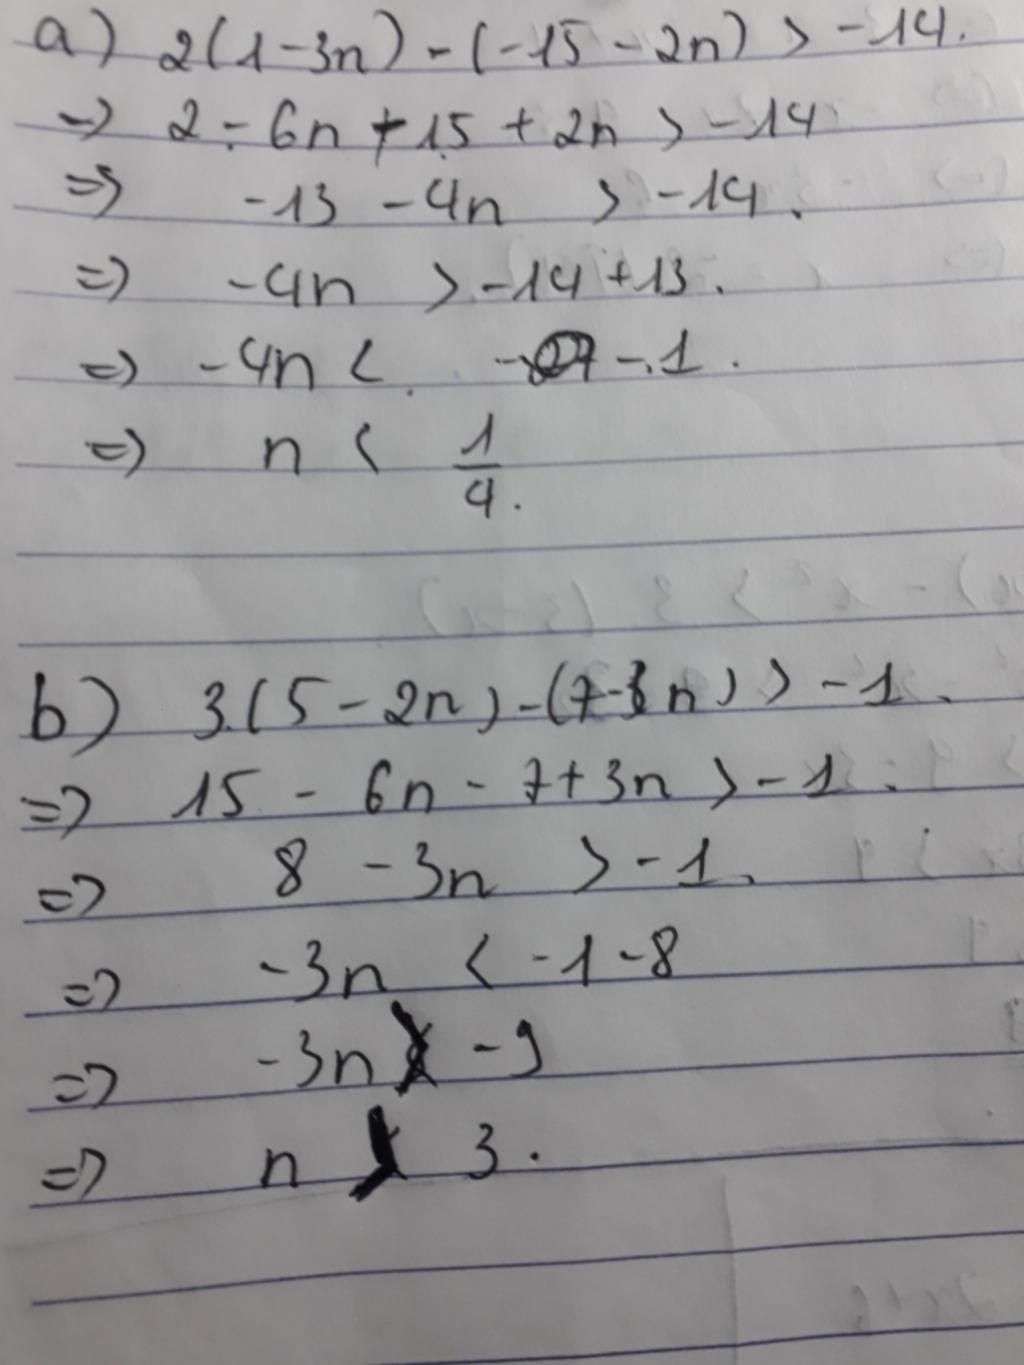 a) 2(1-3n) - (-15 - 2n) > -14.
=> 2 - 6n + 15 + 2n > -14
=> -13 - 4n > -14.
=> -4n > -14 + 13.
=> -4n < -1.
=> n < 1/4.
b) 3.(5 - 2n) - (7-3n) > -1.
=> 15 - 6n - 7 + 3n > -1.
=> 8 - 3n > -1.
=> -3n < -1 - 8
=> -3n -9
=> n 3.